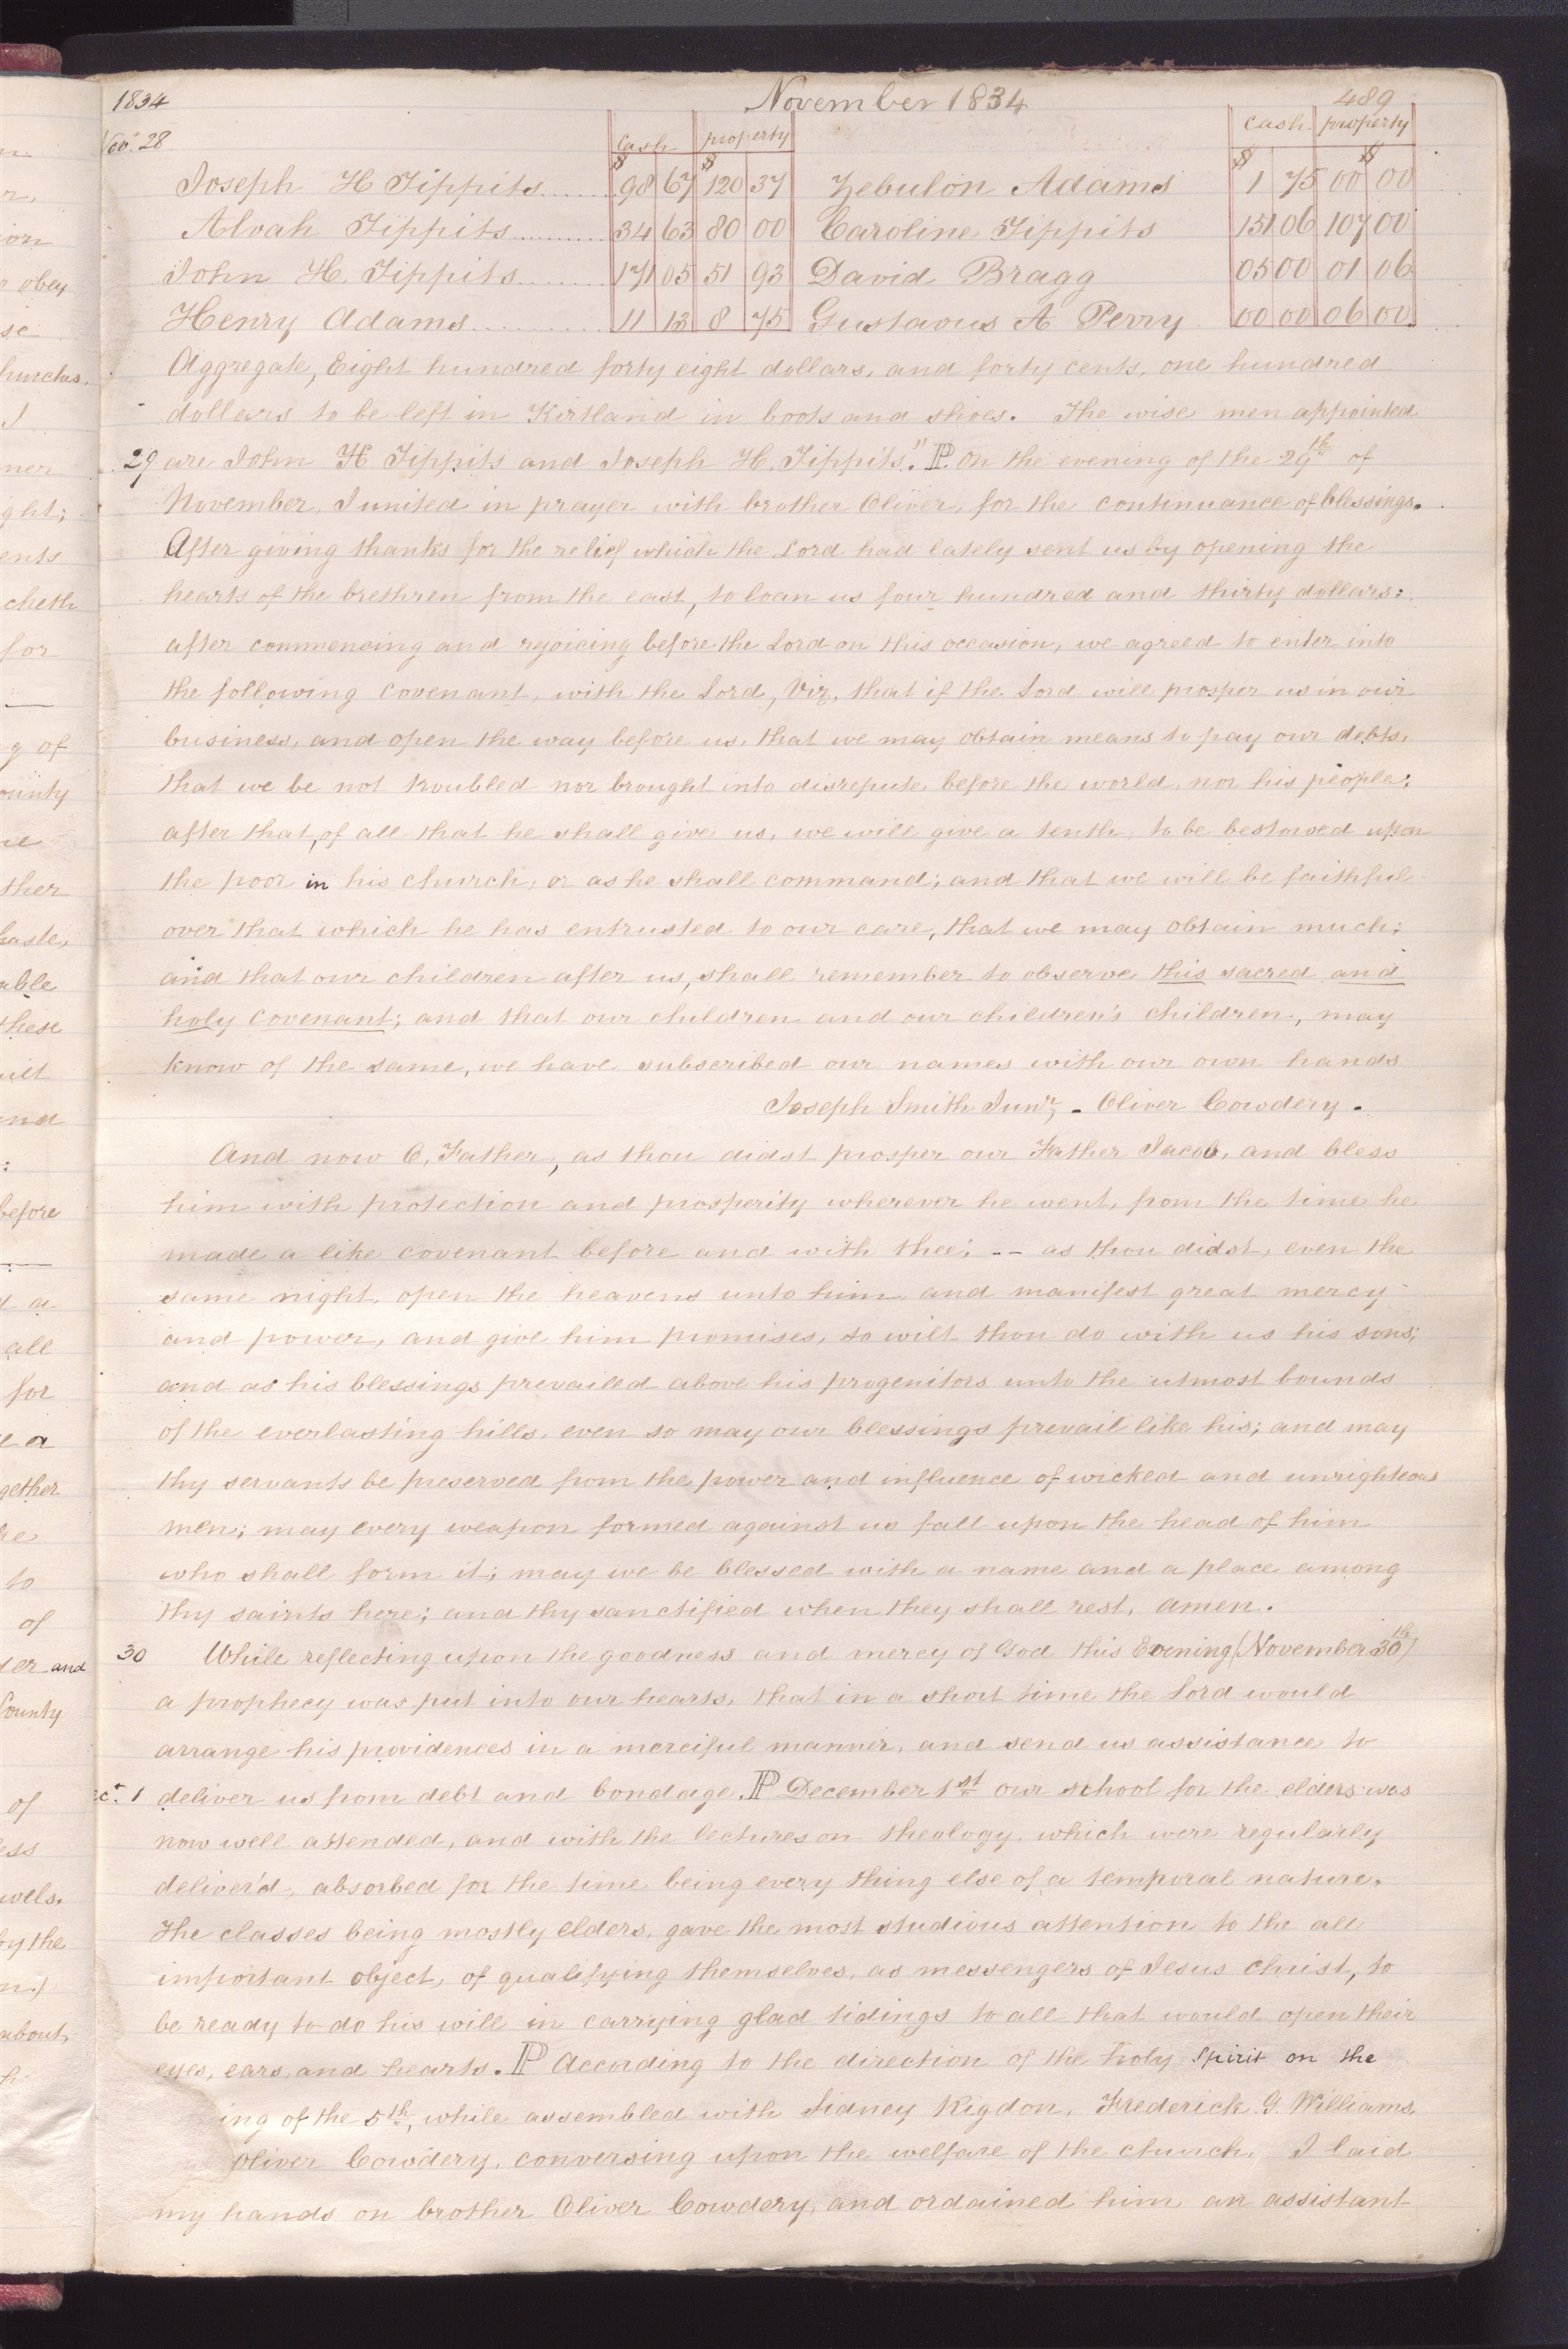 1834 November 1834 489
Nov. 28 Cash property cash property
Joseph H Tippits $98 67 $120 37 Zebulon Adams $1 75 $00 00
Alvah Tippits 34 63 80 00 Caroline Tippits 151 06 107 00
John H. Tippits 171 05 51 93 David Bragg 05 00 01 06
Henry Adams 11 13 8 75 Gustavus A Perry 00 00 06 00
Aggregate, Eight hundred forty eight dollars, and forty cents, one hundred
dollars to be left in Kirtland in boots and shoes. The wise men appointed
29 are John H Tippits and Joseph H. Tippits." P. On the evening of the 29th of
November, I united in prayer with brother Oliver, for the continuance of blessings.
After giving thanks for the relief which the Lord had lately sent us by opening the
hearts of the brethren from the east, to loan us four hundred and thirty dollars:
after commencing and rejoicing before the Lord on this occasion, we agreed to enter into
the following covenant, with the Lord, Viz, that if the Lord will prosper us in our
business, and open the way before us, that we may obtain means to pay our debts,
that we be not troubled nor brought into disrepute before the world, nor his people;
after that, of all that he shall give us, we will give a tenth, to be bestowed upon
the poor in his church, or as he shall command; and that we will be faithful
over that which he has entrusted to our care, that we may obtain much;
and that our children after us, shall remember to observe this sacred and
holy covenant; and that our children and our children's children, may
know of the same, we have subscribed our names with our own hands
Joseph Smith Junr, - Oliver Cowdery.
And now O, Father, as thou didst prosper our Father Jacob, and bless
him with protection and prosperity wherever he went, from the time he
made a like covenant before and with thee; -- as thou didst, even the
same night, open the heavens unto him and manifest great mercy
and power, and give him promises, so wilt thou do with us his sons;
and as his blessings prevailed above his progenitors unto the utmost bounds
of the everlasting hills, even so may our blessings prevail like his; and may
thy servants be preserved from the power and influence of wicked and unrighteous
men; may every weapon formed against us fall upon the head of him
who shall form it; may we be blessed with a name and a place among
thy saints here; and thy sanctified when they shall rest, amen.
30 While reflecting upon the goodness and mercy of God this Evening (November 30th)
a prophecy was put into our hearts, that in a short time the Lord would
arrange his providences in a merciful manner, and send us assistance to
ec. 1 deliver us from debt and bondage. P December 1st our school for the elders was
now well attended, and with the lectures on theology, which were regularly
deliver'd, absorbed for the time being every thing else of a temporal nature.
The classes being mostly elders, gave the most studious attention to the all
important object, of qualifying themselves, as messengers of Jesus Christ, to
be ready to do his will in carrying glad tidings to all that would open their
eyes, ears, and hearts. P According to the direction of the holy Spirit on the
ing of the 5th, while assembled with Sidney Rigdon, Frederick G. Williams,
Oliver Cowdery, conversing upon the welfare of the church, I laid
my hands on brother Oliver Cowdery, and ordained him an assistant